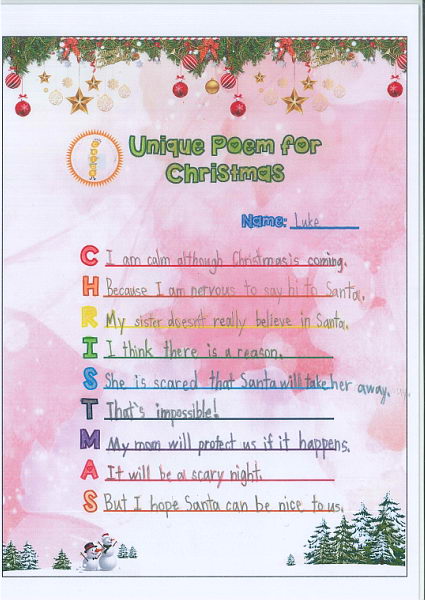 Unique Poem for
Christmas
Name: Luke
C I am calm although Christmas is coming.
H Because I am nervous to say hi to Santa.
R My sister doesn't really believe in Santa.
I I think there is a reason.
S She is scared that Santa will take her away.
T That's impossible!
M My mom will protect us if it happens.
A It will be a scary night.
S But I hope Santa can be nice to us.